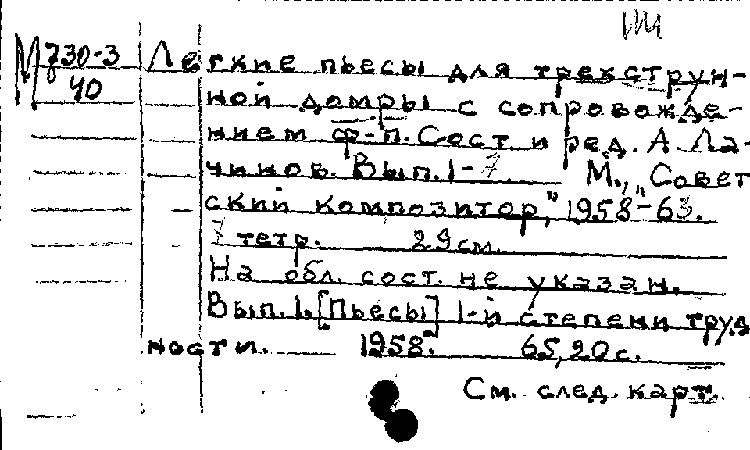 М 730-3
40
Легкие пьесы для трехструн-
ной домры с сопровожде-
нием ф-п. Сост. и ред. А. Ла-
чинов. Вып. 1-7. М., „Совет
ский композитор," 1958-63.
7 тетр. 29 см.
На обл. сост. не указан.
Вып. 1. [Пьесы] 1-й степени труд
ности. 1958. 65, 20 с.
См. след. карт.